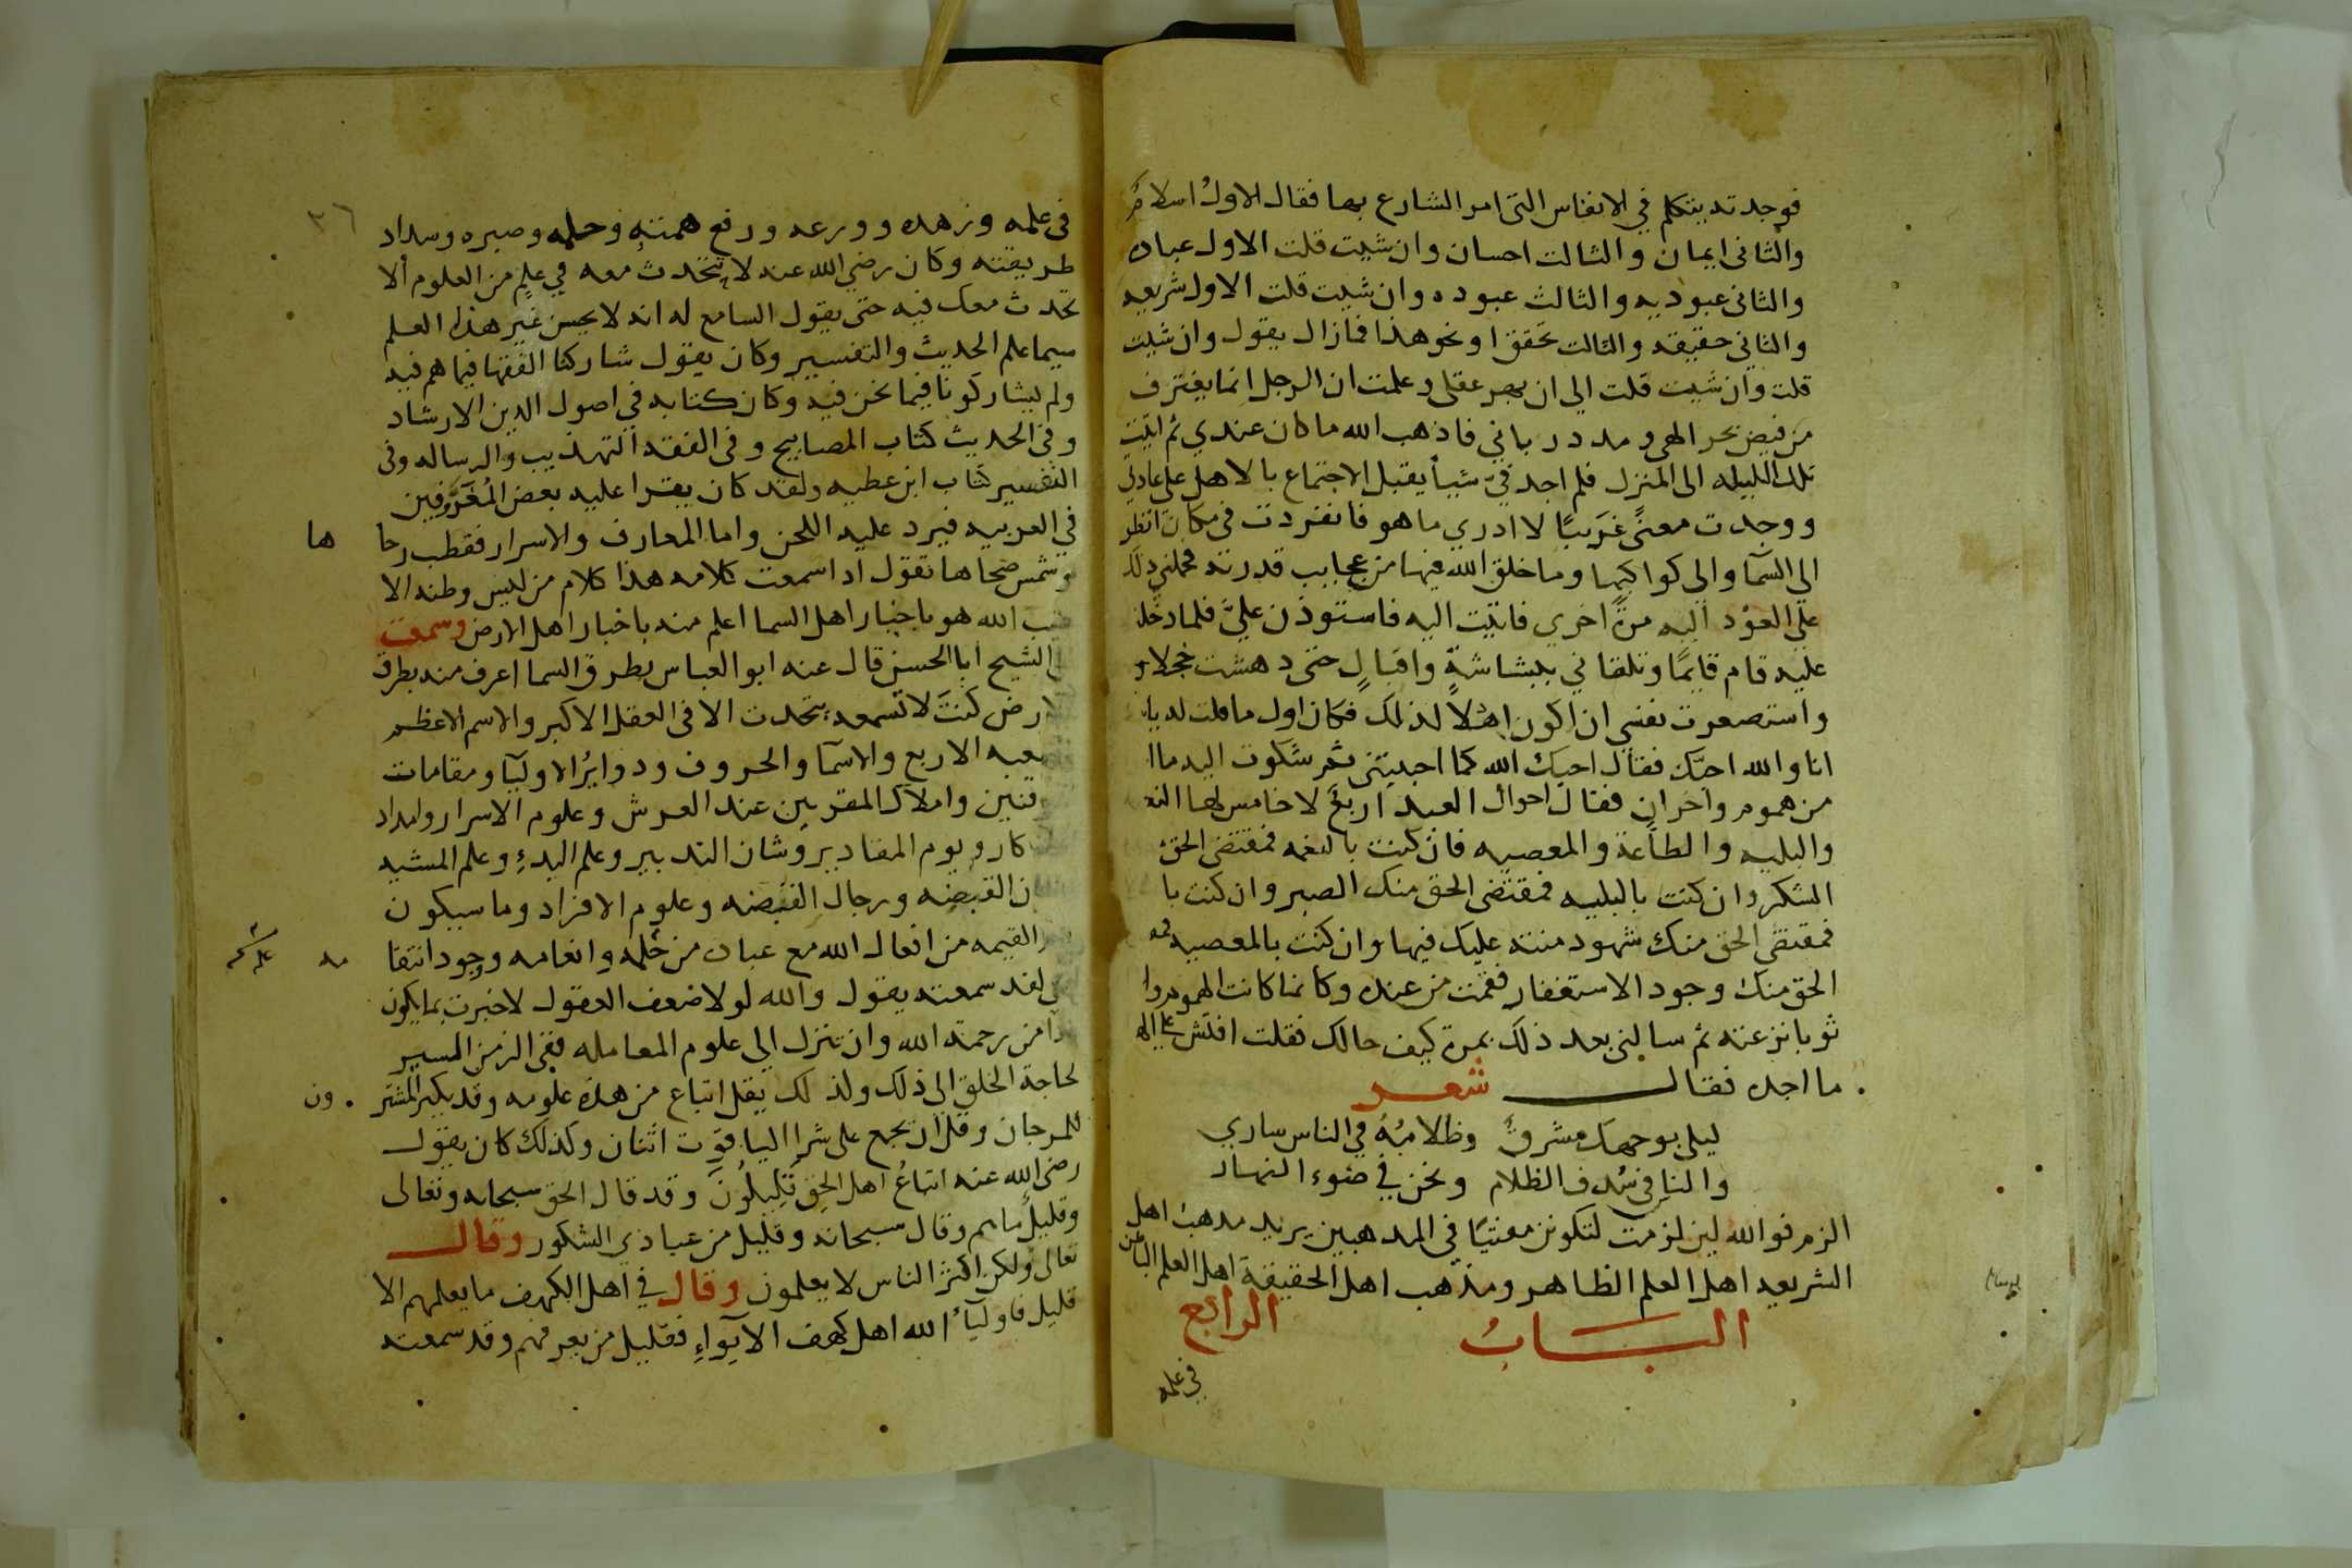 فوجدته يتكلم في الانفاس التى امر الشارع بها فقال الاول اسلام
والثانى ايمان والثالث احسان وان شيت قلت الاول عباده
والثانى عبوديه والثالث عبوده وان شيت قلت الاول شريعه
والثانى حقيقه والثالث تحقق او نحو هذا فما زال يقول وان شيت
قلت وان شيت قلت الى ان بهر عقلى وعلمت ان الرجل انما يغترف
من فيض بحر الهى ومدد ربانى فاذهب الله ما كان عندي ثم اتيت
تلك الليله الى المنزل فلم اجد فيّ شيأ يقبل الاجتماع بالاهل على عادتى
ووجدت معنًى غريبًا لا ادري ما هو فانفردت في مكان انظر
الى السمآ والى كواكبها وما خلق الله فيها من عجايب قدرته فحملنى ذلك
على العود اليه مرة اخري فاتيت اليه فاستوذن عليّ فلما دخلت
عليه قام قايمًا وتلقانى ببشاشةٍ واقبالٍ حتى دهشت خجلا
واستصغرت نفسى ان اكون اهلاً لذلك فكان اول ما قلت له يا
انا والله احبّك فقال احبك الله كما احببتنى ثم شكوت اليه ما ا
من هموم واحزان فقال احوال العبد اربع لا خامس لها النع
والبليه والطاعة والمعصيه فان كنت بالنعمه فمقتضى الحق
الشكر وان كنت بالبليه فمقتضى الحق منك الصبر وان كنت با
فمقتضى الحق منك شهود منته عليك فيها وان كنت بالمعصيه فمـ
الحق منك وجود الاستغفار فقمت من عنده وكانما كانت الهموم وا
ثوبا نزعته ثم سالنى بعد ذلك بمرة كيف حالك فقلت افتش على اله
ما اجده فقال شعر
ليلى بوجهك مشرقٌ وظلامهُ في الناس ساري
والنا فى سُدف الظلام ونحن في ضوء النهار
الزم فوالله لين لزمت لتكونن مفتيًا في المذهبين يريد مذهب اهل
الشريعه اهل العلم الظاهر ومذهب اهل الحقيقة اهل العلم الباطن
البـــابُ الرابع
فى علمه
٣٦
فى علمه وزهده وورعه ورفع همته وحلمه وصبره وسداد
طريقته وكان رضي الله عنه لا يتحدث معه في علمٍ من العلوم الا
تحدث معك فيه حتى يقول السامع له انه لا يحسن غير هذا العلم
سيما علم الحديث والتفسير وكان يقول شاركنا الفقها فيما هم فيه
ولم يشاركونا فيما نحن فيه وكان كتابه في اصول الدين الارشاد
وفى الحديث كتاب المصابيح وفى الفقه التهذيب والرساله وفى
التفسير كتاب ابن عطيه ولقد كان يقرا عليه بعض المُعَرَّوفين
في العربيه فيرد عليه اللحن واما المعارف والاسرار فقطب رحا ها
وشمس ضحاها تقول اذا سمعت كلامه هذا كلام من ليس وطنه الا
غيب الله هو باخبار اهل السما اعلم منه باخبار اهل الارض وسمعت
الشيخ ابا الحسن قال عنه ابو العباس بطرق السما اعرف منه بطرق
ارض كنتَ لا تسمعه يتحدث الا فى العقل الاكبر والاسم الاعظم
ـعبه الاربع والاسمآ والحروف ودواير الاوليآ ومقامات
ـقنين واملاك المقربين عند العرش وعلوم الاسرار وامداد
كار ويوم المقادير وشان التدبير وعلم البدءِ وعلم المشيه
ـن القبضه ورجال القبضه وعلوم الافراد وما سيكون
القيمه من افعال الله مع عباده من حلمه وانعامه ووجود انتقا مه
لقد سمعته يقول والله لولا ضعف العقول لاخبرت بما يكون
ـدا من رحمة الله وان تنزل الى علوم المعامله ففى الزمن اليسير
لحاجة الخلق الى ذلك ولذلك يقل اتباع من هذه علومه وقد يكثر المشتر ون
للمرجان وقل ان يجمع على شرا الياقوت اثنان وكذلك كان يقول
رضى الله عنه اتباعُ اهل الحق قليلُون وقد قال الحق سبحانه وتعالى
وقليلٌ ما هم وقال سبحانه وقليل من عبادي الشكور وقال
تعالى ولكن اكثر الناس لا يعلمون وقال في اهل الكهف ما يعلمهم الا
قليل فاوليآءُ الله اهل كهف الايواءِ فقليل من يعرفهم وقد سمعته